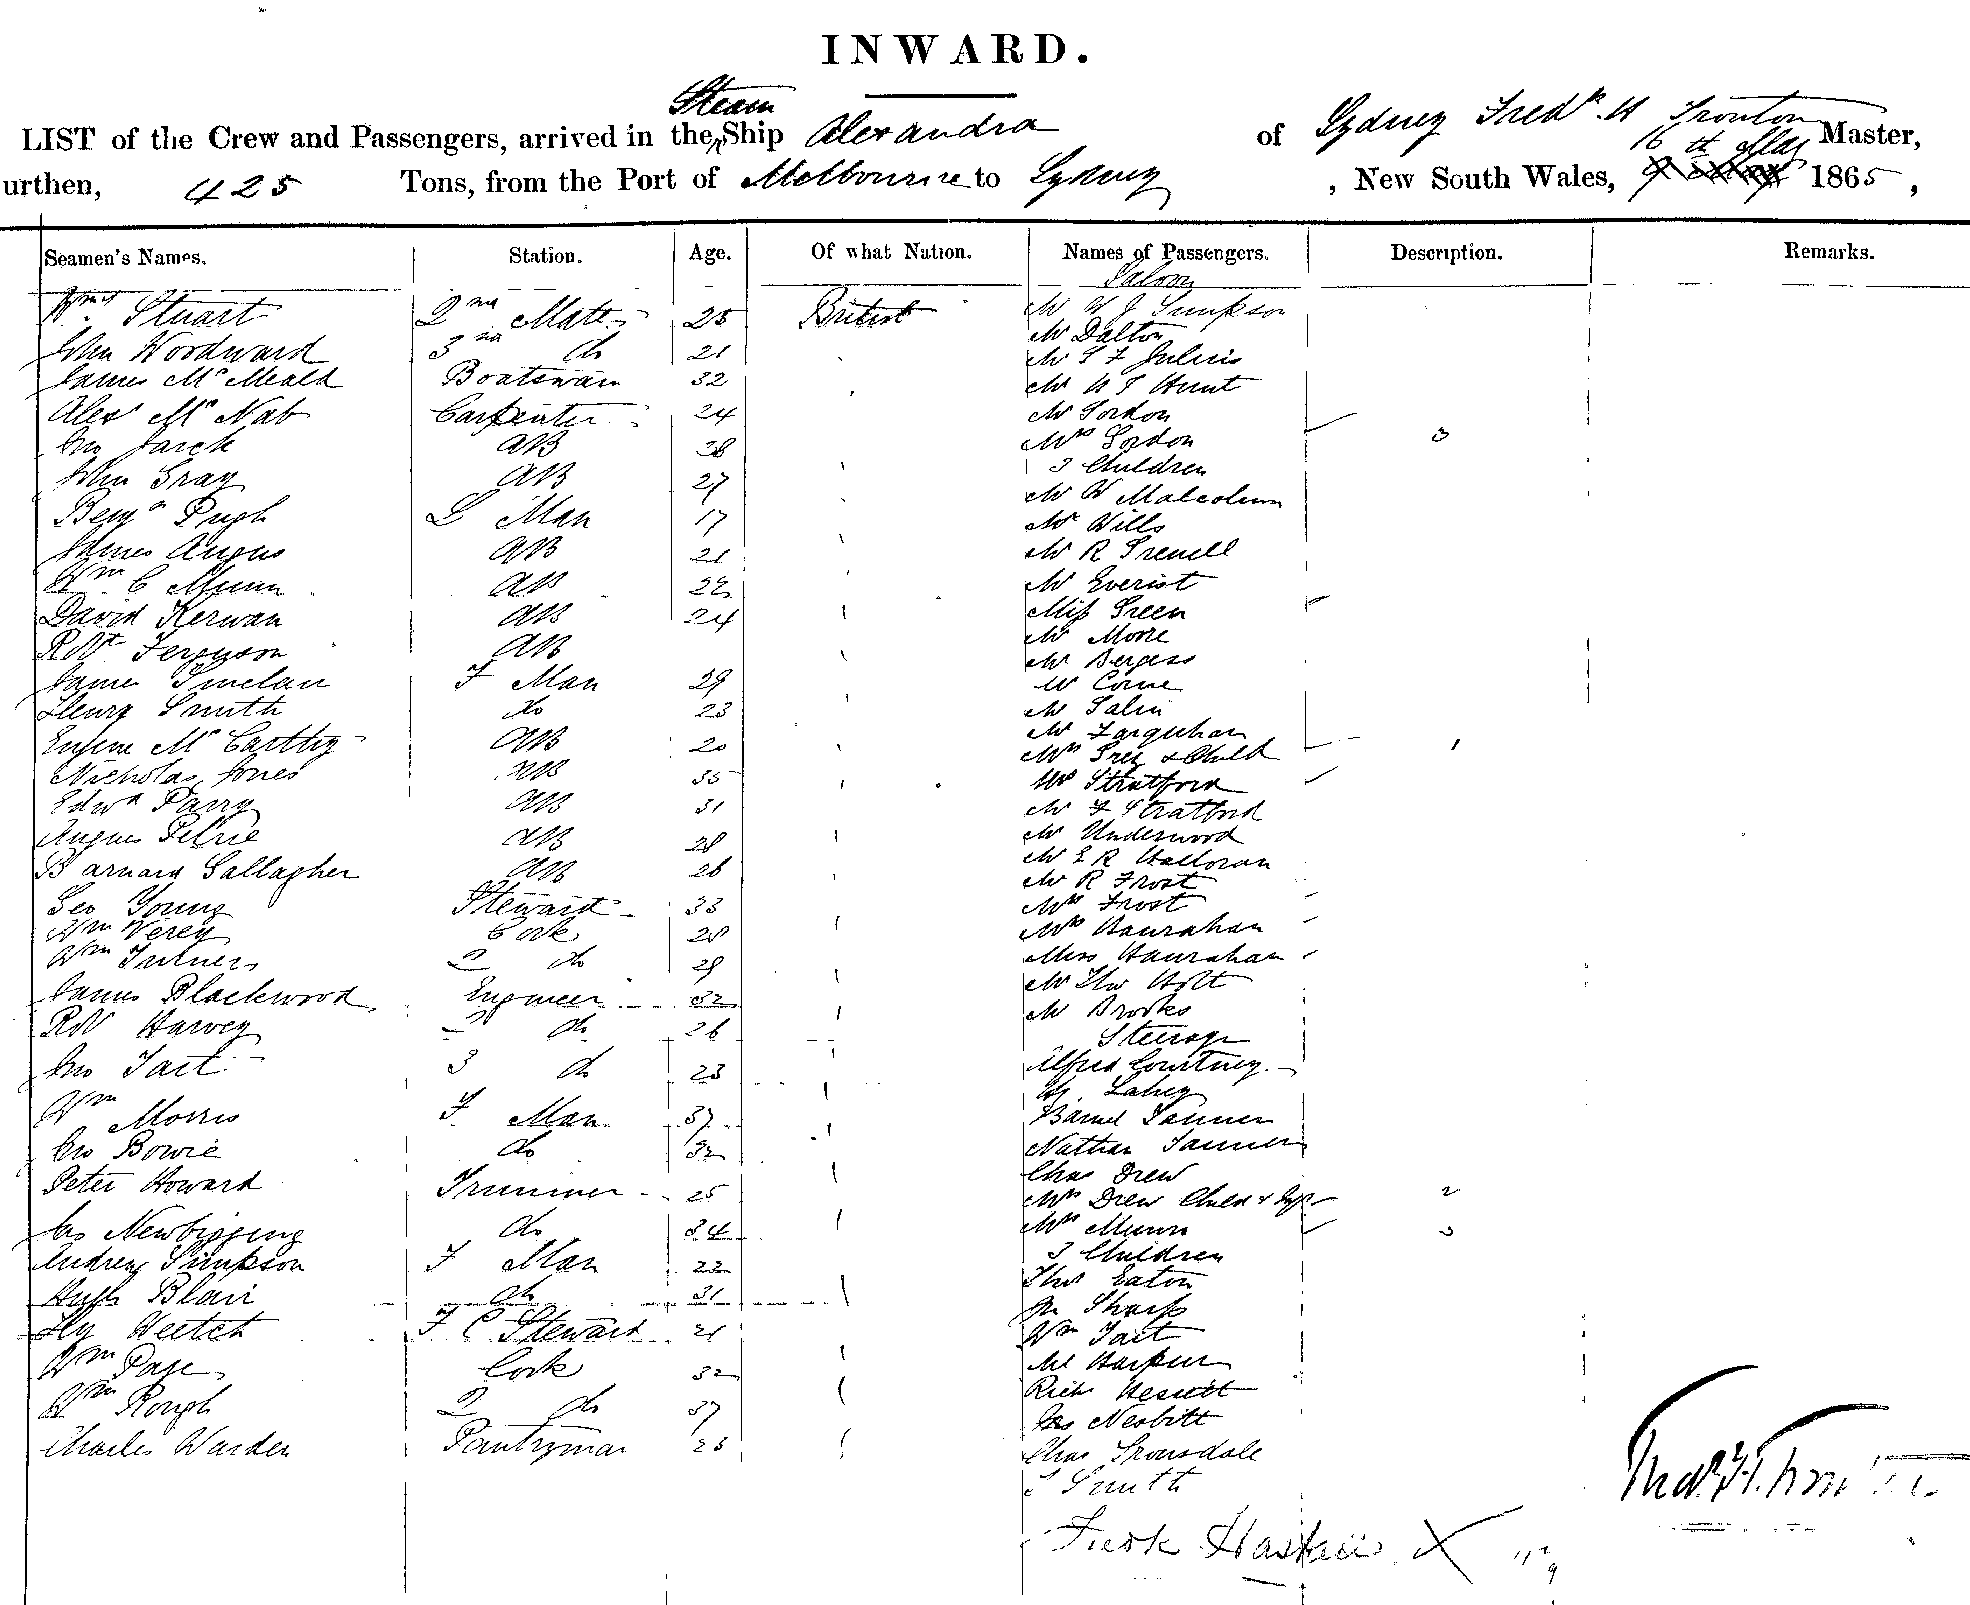 INWARD.
LIST of the Crew and Passengers, arrived in the Steam Ship Alexandra of Sydney Fredk. H Trouton Master,
urthen, 425 Tons, from the Port of Melbourne to Sydney, New South Wales, 16th May 1865,
Seamen's Names. Station. Age. Of what Nation. Names of Passengers. Description. Remarks.
Saloon
Stuart 2nd Mate 25 British Mr W J Simpson
Mr Dalton
John Woodward 3rd do 21 Mr Julius
James Mc Meald Boatswain 32 Mr Hunt
Alexr Mc Nab Carpenter 24 Mr Gordon
Jno AB 28 Mrs Gordon 3
3 Children
John Gray AB 27 Mr W Malcolm
Benjn Pugh L Man 17 Mr Wills
James Angus AB 21 Mr R
Wm C Munn AB 22 Mr Everist
David Kerwan AB 24 Miss Green
Mr Moore
Robt Ferguson AB Mr Bergess
James Sinclair F Man 29 Mr
Henry Smith do 23 Mr
Mr Farquhar
Eugene Mc Carthy AB 20 Mrs Grey & Child 1
Nicholas Jones AB 35 Mr Stratford
Edwd Parry AB 31 Mr F Stratford
Angus Petrie AB 28 Mr Underwood
Barnard Gallagher AB 26 Mr E R Halloran
Mr R Frost
Geo Young Steward 33 Mrs Frost
Wm Verey Cook 28 Mrs Hanrahan
Wm 2 do 29 Miss Hanrahan
Mr Thos Holt
James Blackwood Engineer 32 Mr Brooks
Robt Harvey 2 do 26 Steerage
Jno Tait 3 do 23 Alfred Courtney
Lahey
Wm Morris F Man 37 Tanner
Jno Bowie do 32 Nathan Tanner
Chas Drew
Peter Howard Trimmer 25 Mrs Drew Child & Inft 2
Jas Newbigging do 34 Mrs Munn 3
3 Children
Andrew Simpson F Man 22 Thos Eaton
Hugh Blair do 31 Sharp
Hy Weetch F C Steward 21 Wm Tait
Wm Page Cook 32
Wm Rough 2 do 37 Richd
Jas Nesbitt
Charles Warden Pantryman 23 Chas Gronsdale
Smith
Fredk X